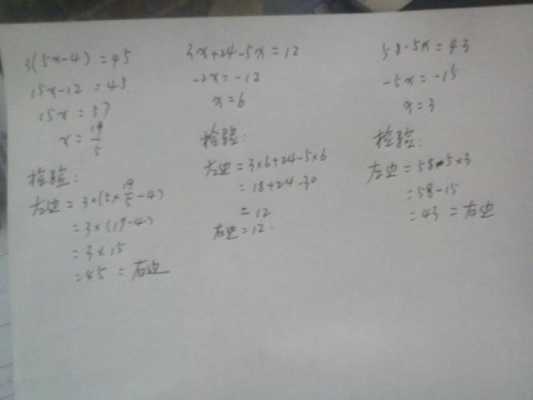 3(5x-4)=45
15x-12=45
15x=57
x=19/5
检验:
左边=3×(5×19/5-4)
=3×(19-4)
=3×15
=45=右边
3x+24-5x=12
-2x=-12
x=6
检验:
左边=3×6+24-5×6
=18+24-30
=12
右边=12
58-5x=43
-5x=-15
x=3
检验:
左边=58-5×3
=58-15
=43=右边